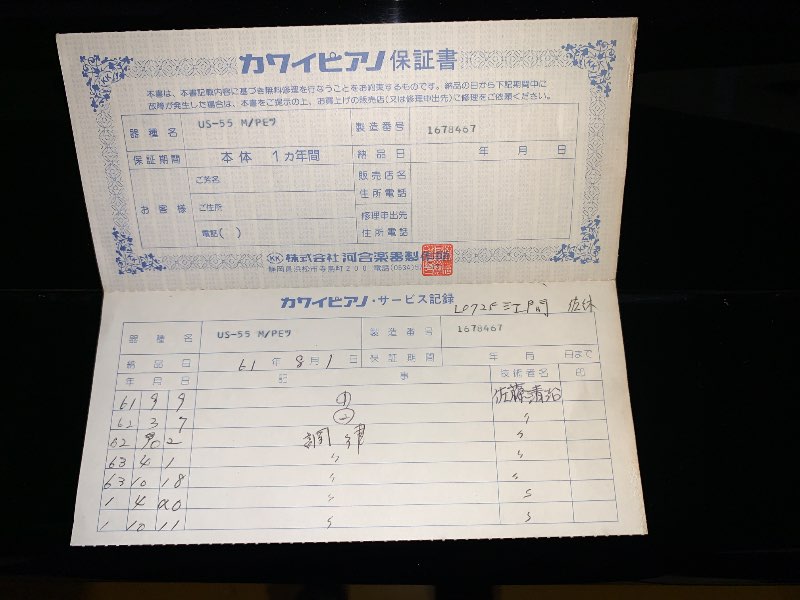 カワイピアノ保証書
本書は、本書記載内容に基づき無料修理を行なうことをお約束するものです。納品の日から下記期間中に
故障が発生した場合は、本書をご提示の上、お買上げの販売店(又は修理申出先)に修理をご依頼ください。
器種名 US-55 M/PEツ 製造番号 1678467
保証期間 本体 1カ年間 納品日 年 月 日
お客様 ご芳名 販売店名
ご住所 住所電話
修理申出先
電話( ) 住所電話
KK 株式会社 河合楽器製作所
静岡県浜松市寺島町200 電話(0534)
カワイピアノ・サービス記録
器種名 US-55 M/PEツ 製造番号 1678467
納品日 61年8月1日 保証期間 年 月 日まで
年月日 記事 技術者名 印
61 9 9 ① 佐藤清治
62 3 7 ② 〃
62 2 調律 〃
63 4 1 〃 〃
63 10 18 〃 〃
1 4 20 〃 〃
1 10 11 〃 〃